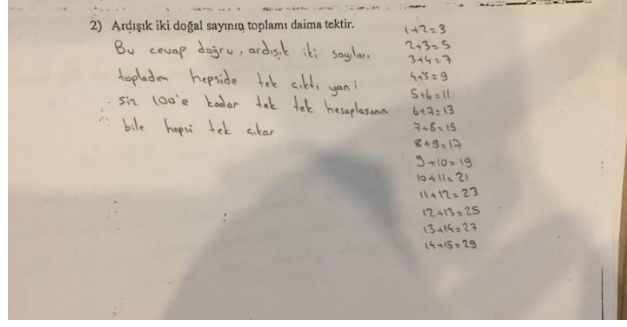 2) Ardışık iki doğal sayının toplamı daima tektir.
Bu cevap doğru, ardışık iki sayıları
topladım hepside tek çıktı, yani
siz 100'e kadar tek tek hesaplasanız
bile hepsi tek çıkar
1+2=3
2+3=5
3+4=7
4+5=9
5+6=11
6+7=13
7+8=15
8+9=17
9+10=19
10+11=21
11+12=23
12+13=25
13+14=27
14+15=29